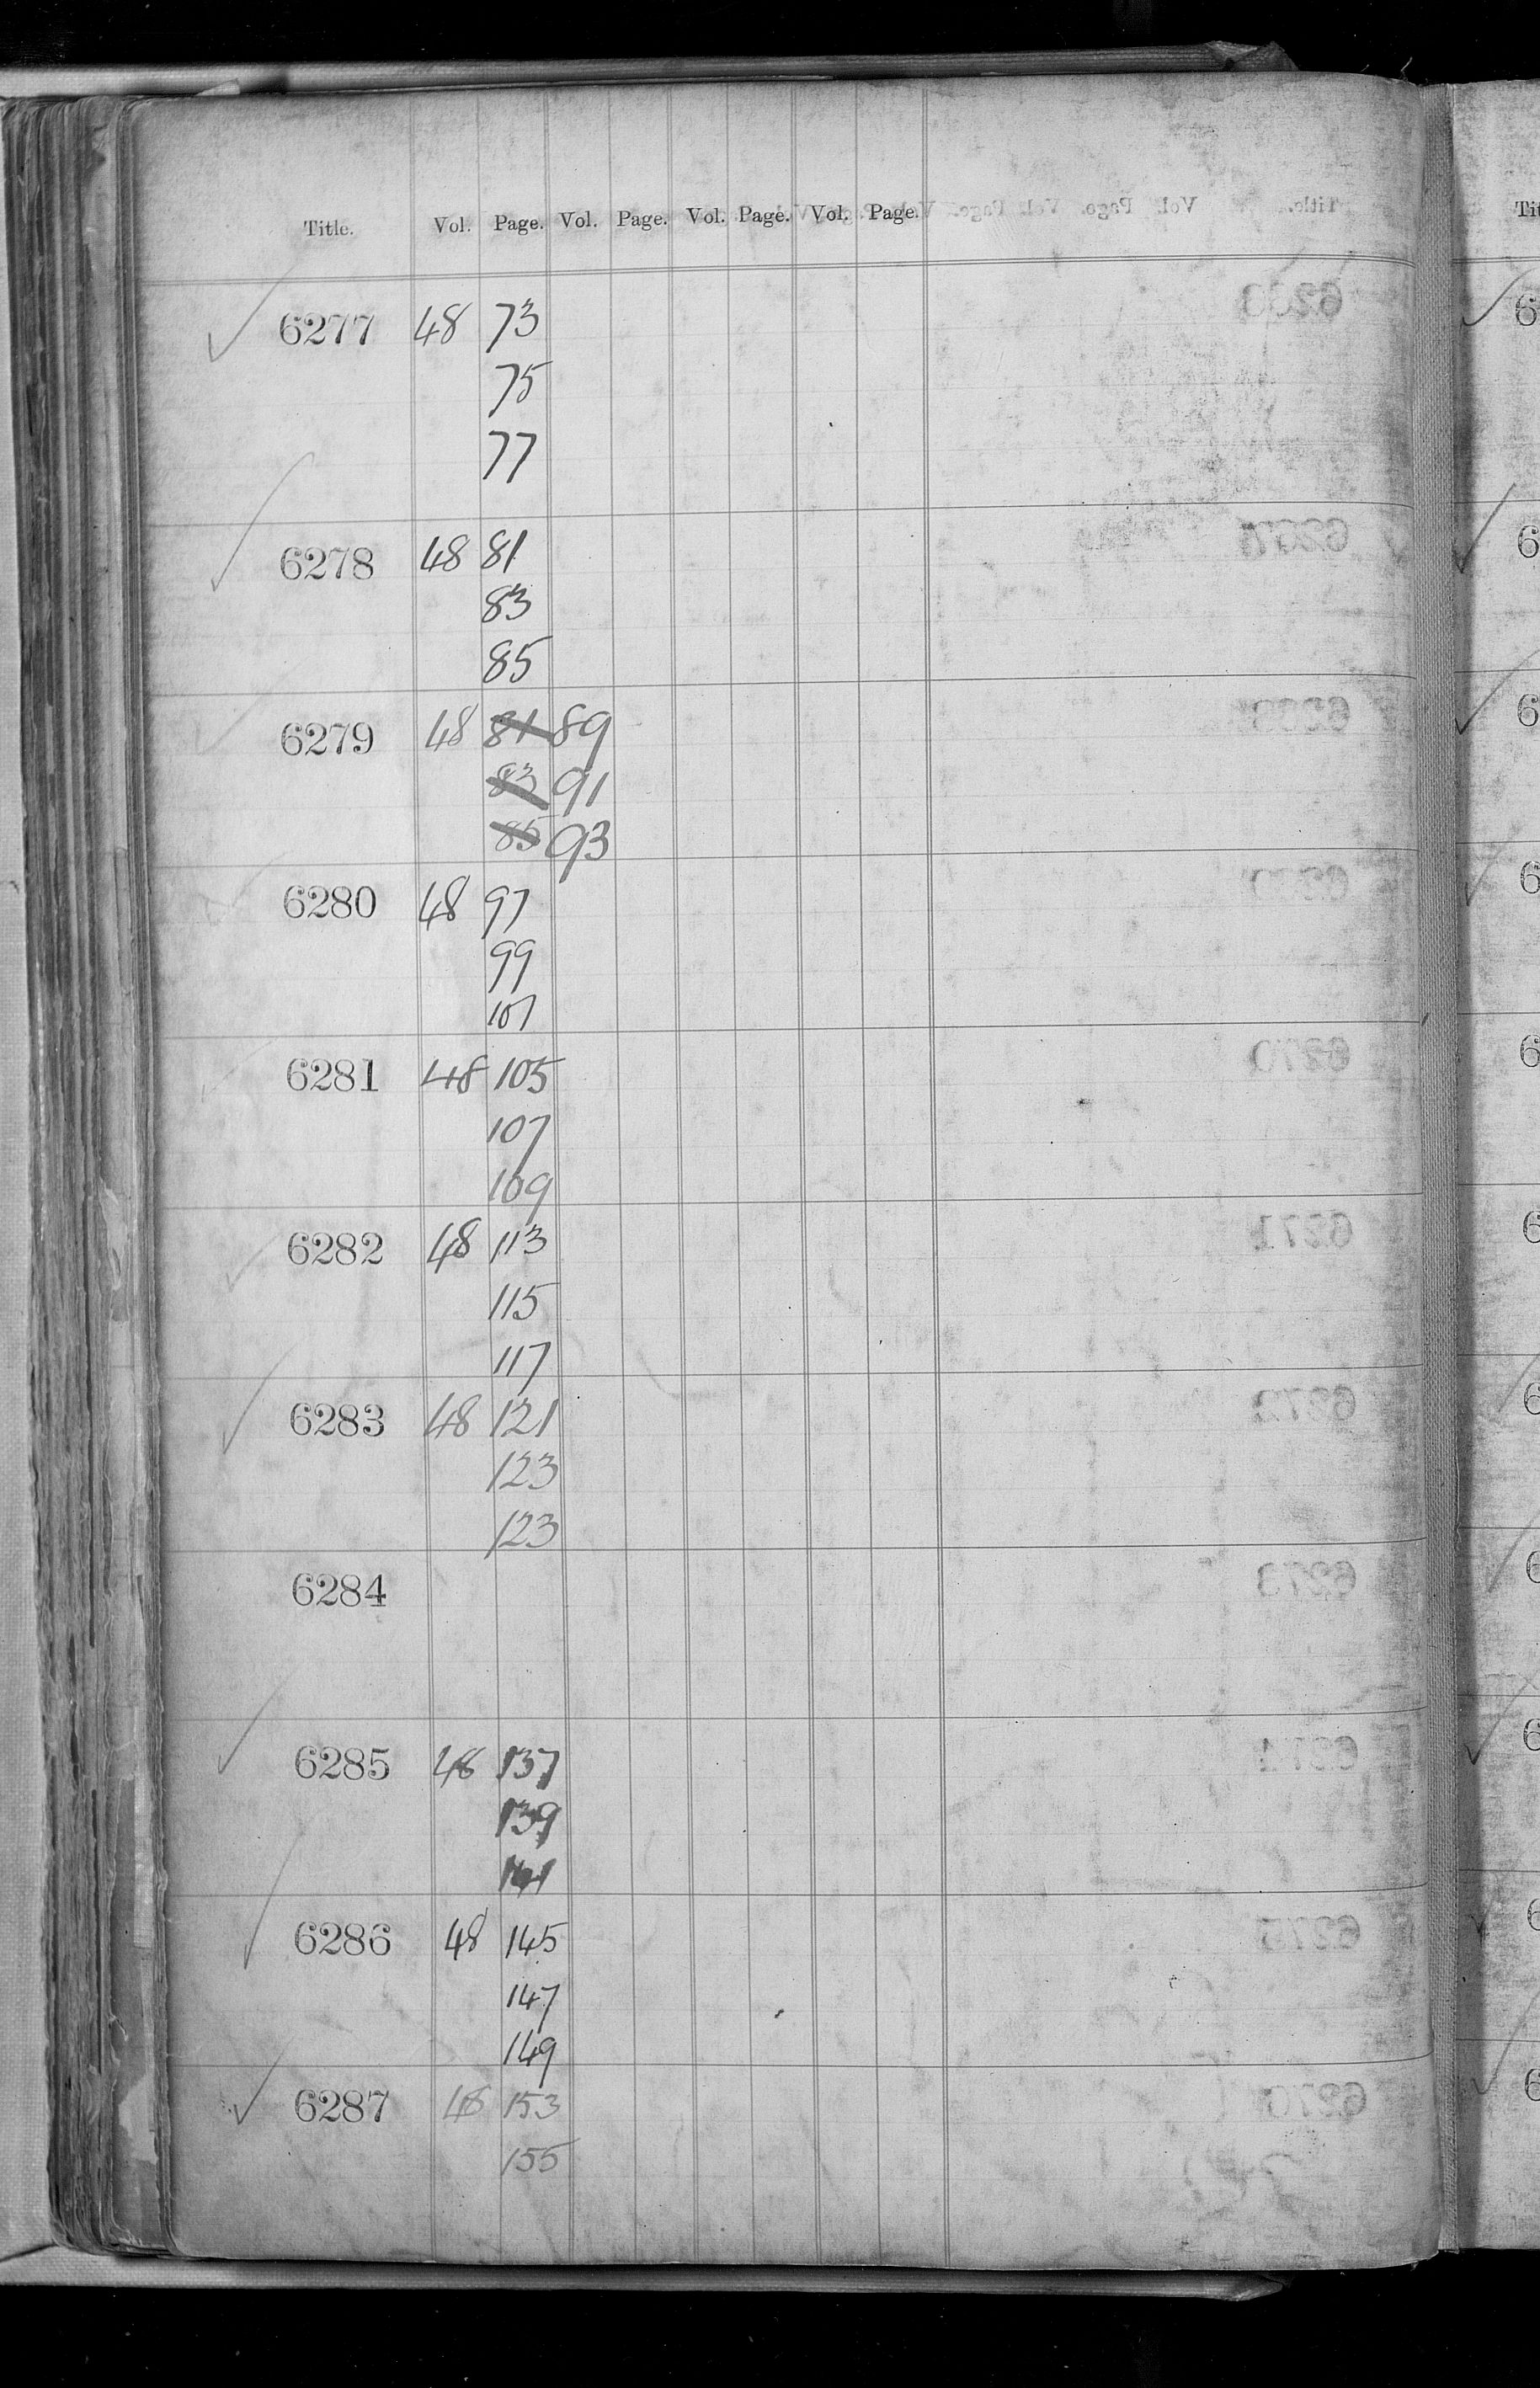 Title. Vol. Page. Vol. Page. Vol. Page. Vol. Page.
6277 48 73
75
77
6278 48 81
83
85
6279 48 81 89
83 91
85 93
6280 48 97
99
101
6281 48 105
107
109
6282 48 113
115
117
6283 48 121
123
123
6284
6285 48 137
139
141
6286 48 145
147
149
6287 48 153
155